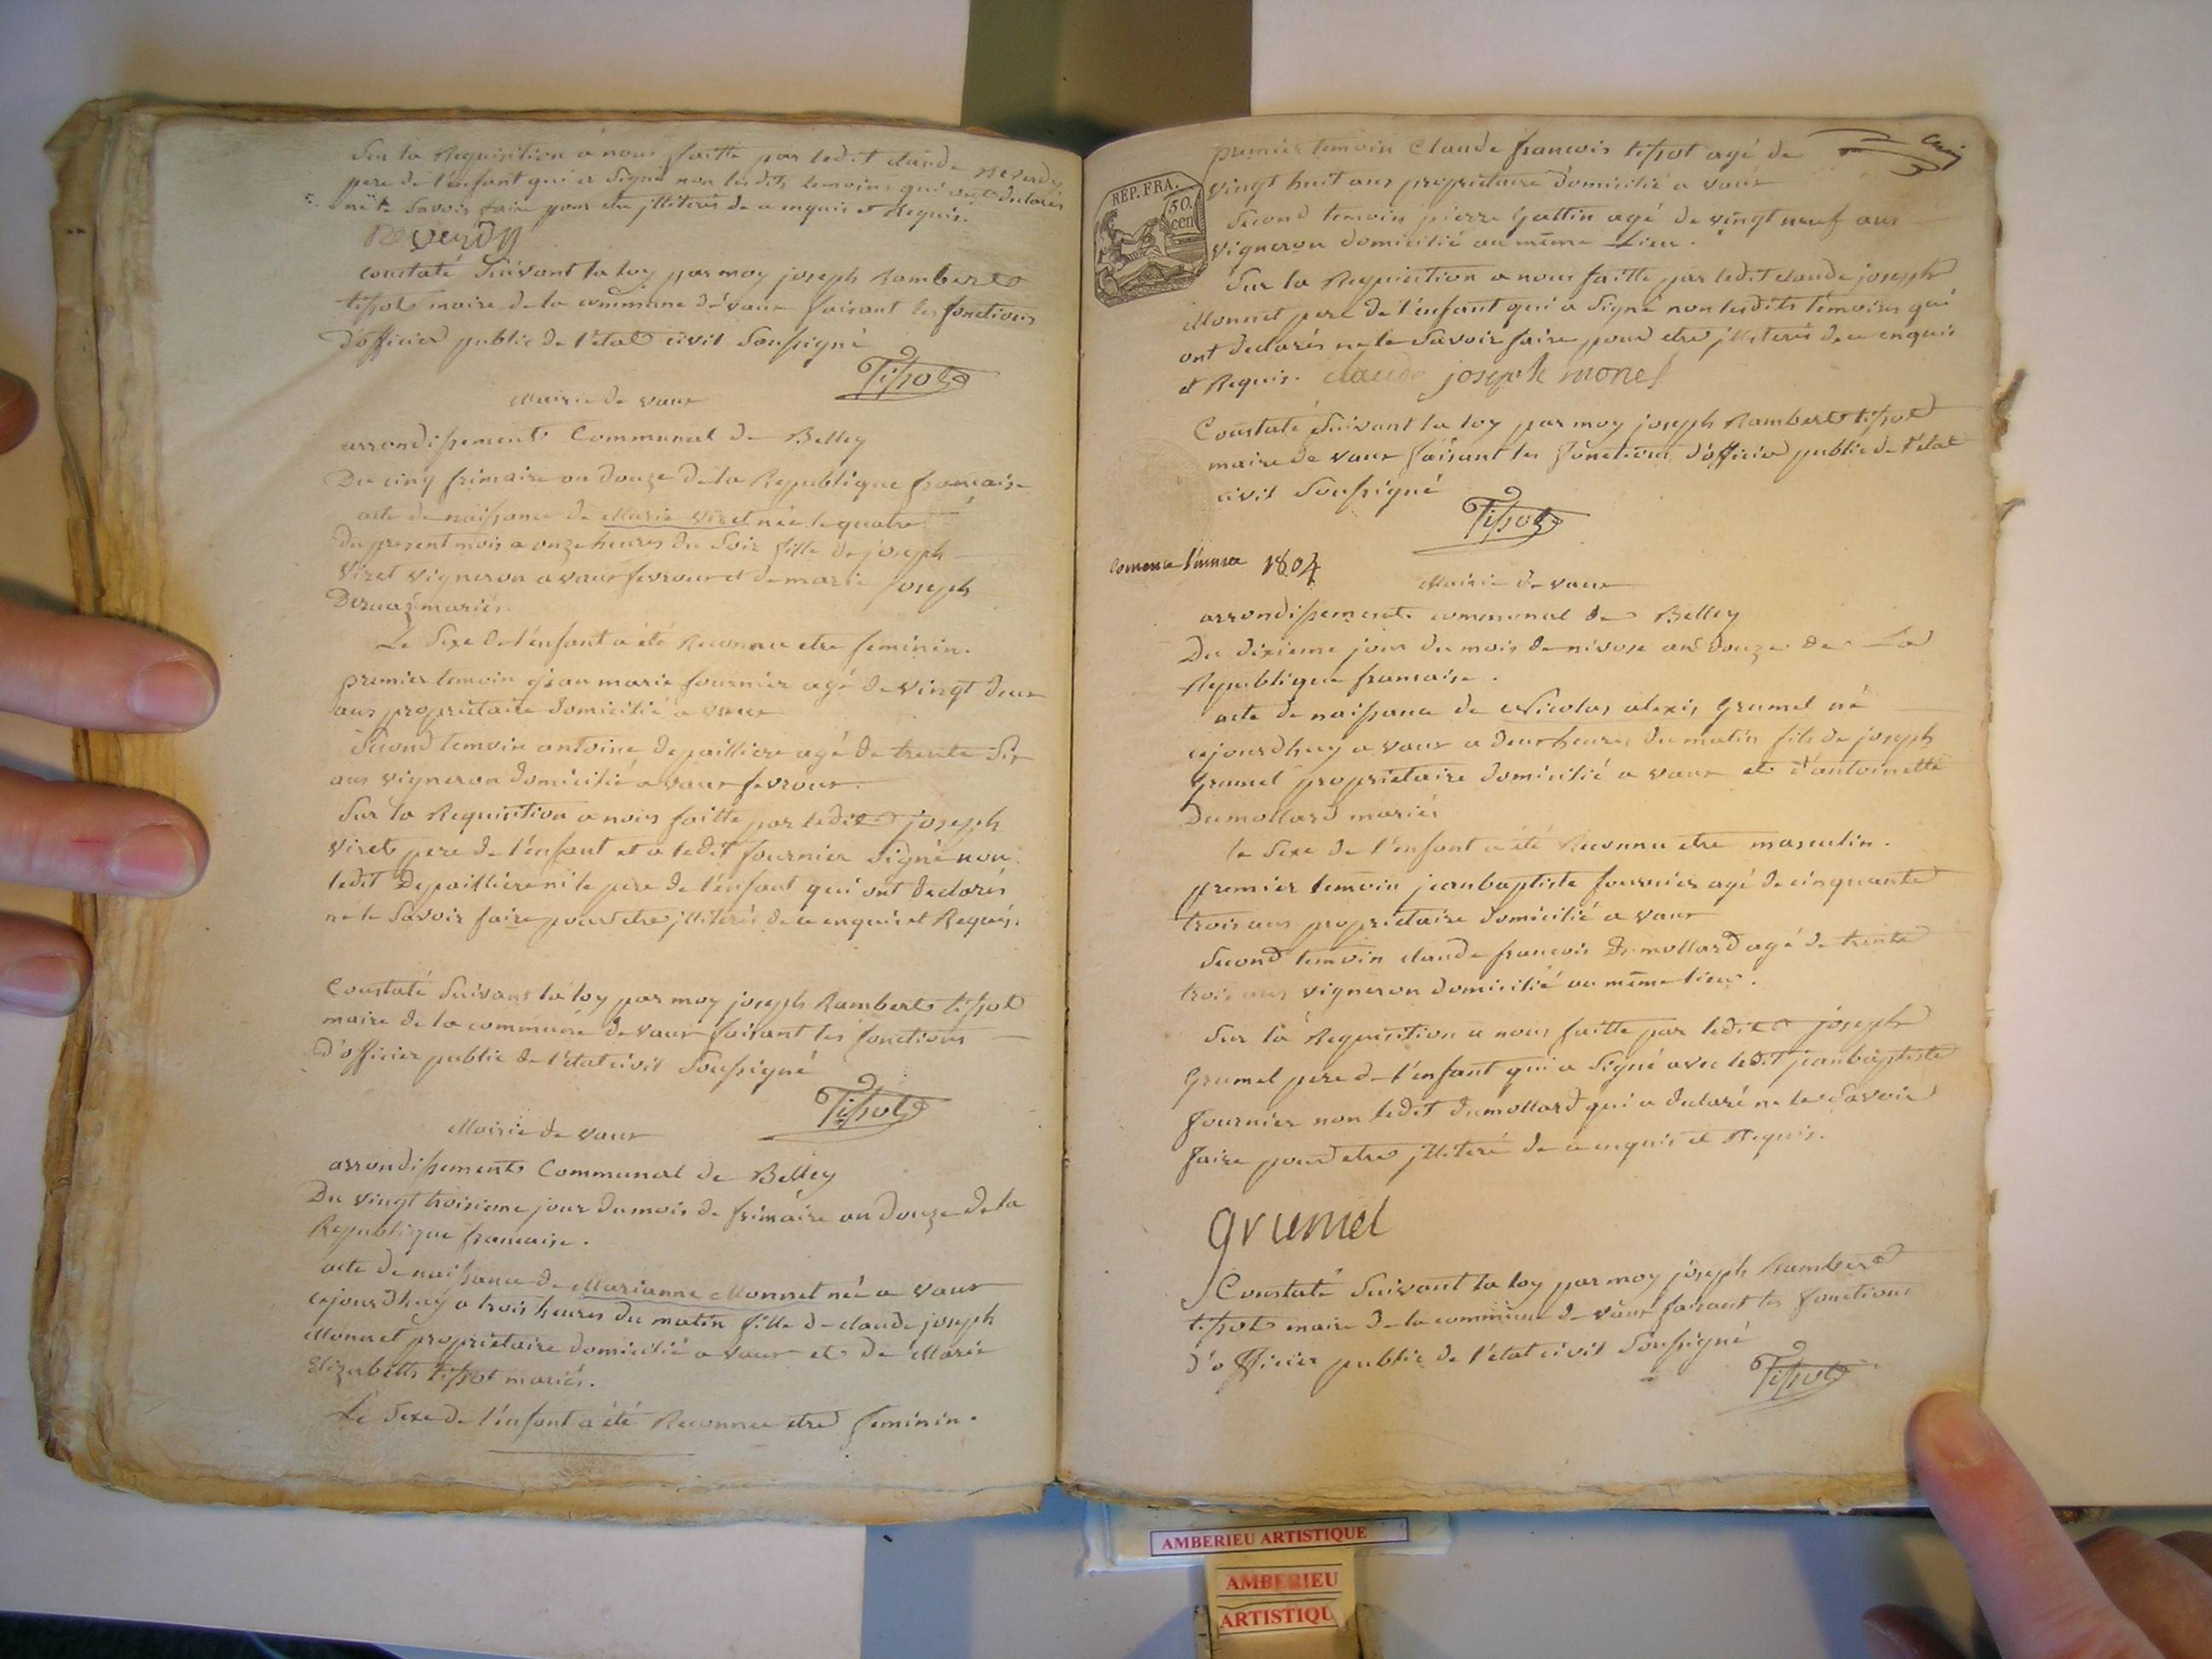 Sur la Requisition a nous faitte par ledit claude Reverdy
pere de l'enfant qui a signé non lesdits temoins qui ont declarés
ne le savoir faire pour etre illiterés de ce enquis et Requis.
Reverdy
constaté suivant la loy par moy joseph Rambert
tissot maire de la commune de vaux faisant les fonctions
d'officier public de l'etat civil soussigné
Tissot
Mairie de vaux
arrondissement Communal de Belley
Du cinq frimaire an douze de la Republique francaise
acte de naissance de Marie Viret née le quatre
du present mois a onze heures du soir fille de joseph
Viret vigneron a vaux fevroux et de marie joseph
mariés.
Le sexe de l'enfant a été Reconnu etre feminin.
premier temoin jean marie fournier agé de vingt deux
ans proprietaire domicilié a vaux
second temoin antoine depailliere agé de trente six
ans vigneron domicilié a vaux fevroux.
Sur la Requisition a nous faitte par ledit joseph
Viret pere de l'enfant et a ledit fournier signé non
ledit Depailliere ni le pere de l'enfant qui ont declarés
ne le savoir faire pour etre illiterés de ce enquis et Requis.
Constaté suivant la loy par moy joseph Rambert tissot
maire de la commune de vaux faisant les fonctions
d'officier public de l'etat civil soussigné
Tissot
Mairie de vaux
arrondissement Communal de Belley
Du vingt troisieme jour du mois de frimaire an douze de la
Republique francaise.
acte de naissance de Marianne Monnet née a vaux
cejourdhuy a trois heures du matin fille de claude joseph
Monnet proprietaire domicilié a vaux et de Marie
Elizabeth tissot mariés.
Le sexe de l'enfant a été Reconnu etre feminin.
premier temoin Claude francois tissot agé de
vingt huit ans proprietaire domicilié a vaux
second temoin pierre Gattin agé de vingt neuf ans
vigneron domicilié au même Lieu.
REP. FRA.
50.
cen
Sur la Requisition a nous faitte par ledit claude joseph
Monnet pere de l'enfant qui a signé non lesdits temoins qui
ont declarés ne le savoir faire pour etre illiterés de ce enquis
et Requis. claude joseph monet
Constaté suivant la loy par moy joseph Rambert tissot
maire de vaux faisant les fonctions d'officier public de l'etat
civil soussigné
Tissot
comence l'annee 1804
Mairie de vaux
arrondissement communal de Belley
Du dixieme jour du mois de nivose an douze de La
Republique francaise.
acte de naissance de Nicolas alexis Grumel né
cejourdhuy a vaux a deux heures du matin fils de joseph
Grumel proprietaire domicilié a vaux et d'antoinette
Dumollard mariés
le sexe de l'enfant a été Reconnu etre masculin.
premier temoin jean baptiste fournier agé de cinquante
trois ans proprietaire domicilié a vaux
second temoin claude francois Dumollard agé de trente
trois ans vigneron domicilié au même lieu.
Sur la Requisition a nous faitte par ledit joseph
Grumel pere de l'enfant qui a signé avec ledit jean baptiste
fournier non ledit dumollard qui a declaré ne le savoir
faire pour etre illiteré de ce enquis et Requis.
grumel
Constaté suivant la loy par moy joseph Rambert
tissot maire de la commune de vaux faisant les fonctions
d'officier public de l'etat civil soussigné
Tissot
AMBERIEU ARTISTIQUE
AMBERIEU
ARTISTIQU